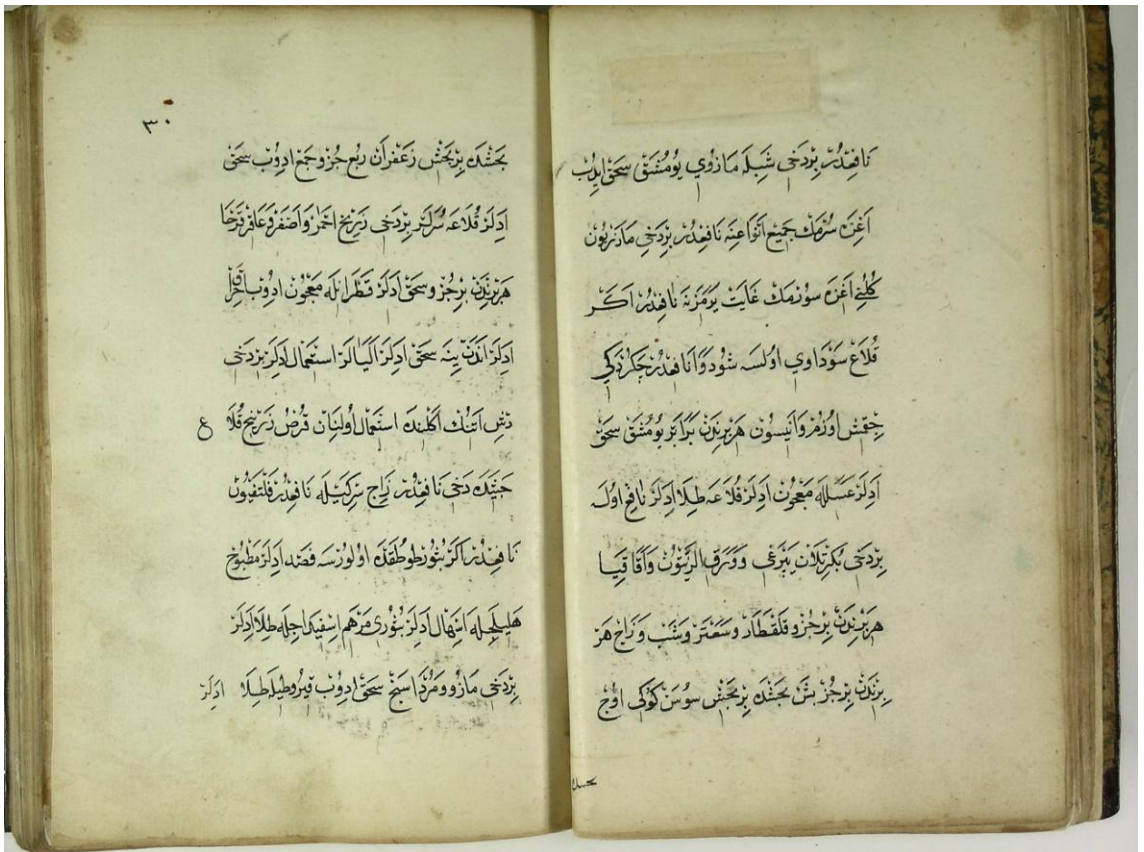 نافعدر بردخی شبله مازوي يومشق سحق ایدب
اغزه سرمك جميع انواعنه نافعدر بردخی مازریون
كلنی اغزه سورمك غایت یرمزنه نافعدر اكر
قلاع سوداوي اولسه شودوا نافعدر چكردكي
چقمش اوزم وانیسون هربرندن برابر يومشق سحق
ادلر عسلله معجون ادلر قلاعه طلا ادلر نافع اوله
بردخی بكرتلان يپرغی وورق الزيتون واقاقيا
هربرندن برجزو قلقطار وسعتر وشب وزاج هر
برندن برجز بش بخشده بربخش سوسن كوكی اوچ
بخشده
٣٠
بخشده بربخش زعفران ربع جزو جمع ادوب سحق
ادلر قلاعه سرلر بردخی زرنیخ احمر واصفر وعاقرقرحا
هربرندن برجزو سحق ادلر قطرانله معجون ادوب
ادلر اندن ینه سحق ادلر الیالر استعمال ادلر بردخی
دش اتنك اكلنده استعمال اولنان قرص زرنیخ قلاع
خبیثده دخی نافعدر زاج سركیله نافعدر فلتفیون
نافعدر اكر بثور طوطقده اولورسه فصد ادلر مطبوخ
هلیلجله اسهال ادلر بثوری مرهم اسفیداجله طلا ادلر
بردخی مازو ومرداسنج سحق ادوب قیروطیله طلا ادلر